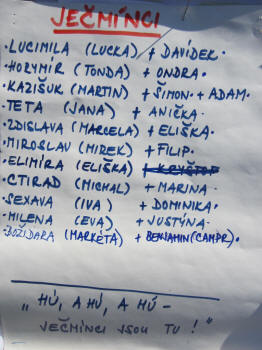 JEČMÍNCI
• LUCIMILA (LUCKA) + DAVÍDEK •
• HORYMÍR (TONDA) + ONDRA •
• KAZIŠUK (MARTIN) + ŠIMON • + ADAM •
• TETA (JANA) + ANIČKA •
• ZDISLAVA (MARCELA) + ELIŠKA •
• MIROSLAV (MIREK) + FILIP •
• ELIMÍRA (ELIŠKA) + KRYŠTOF
• CTIRAD (MICHAL) + MARINA •
• SEXAVA (IVA) + DOMINIKA •
• MILENA (EVA) + JUSTÝNA •
• BOŽIDARA (MARKÉTA) + BENJAMIN (CAMPR) •
„HÚ, A HÚ, A HÚ –
JEČMÍNCI JSOU TU!"